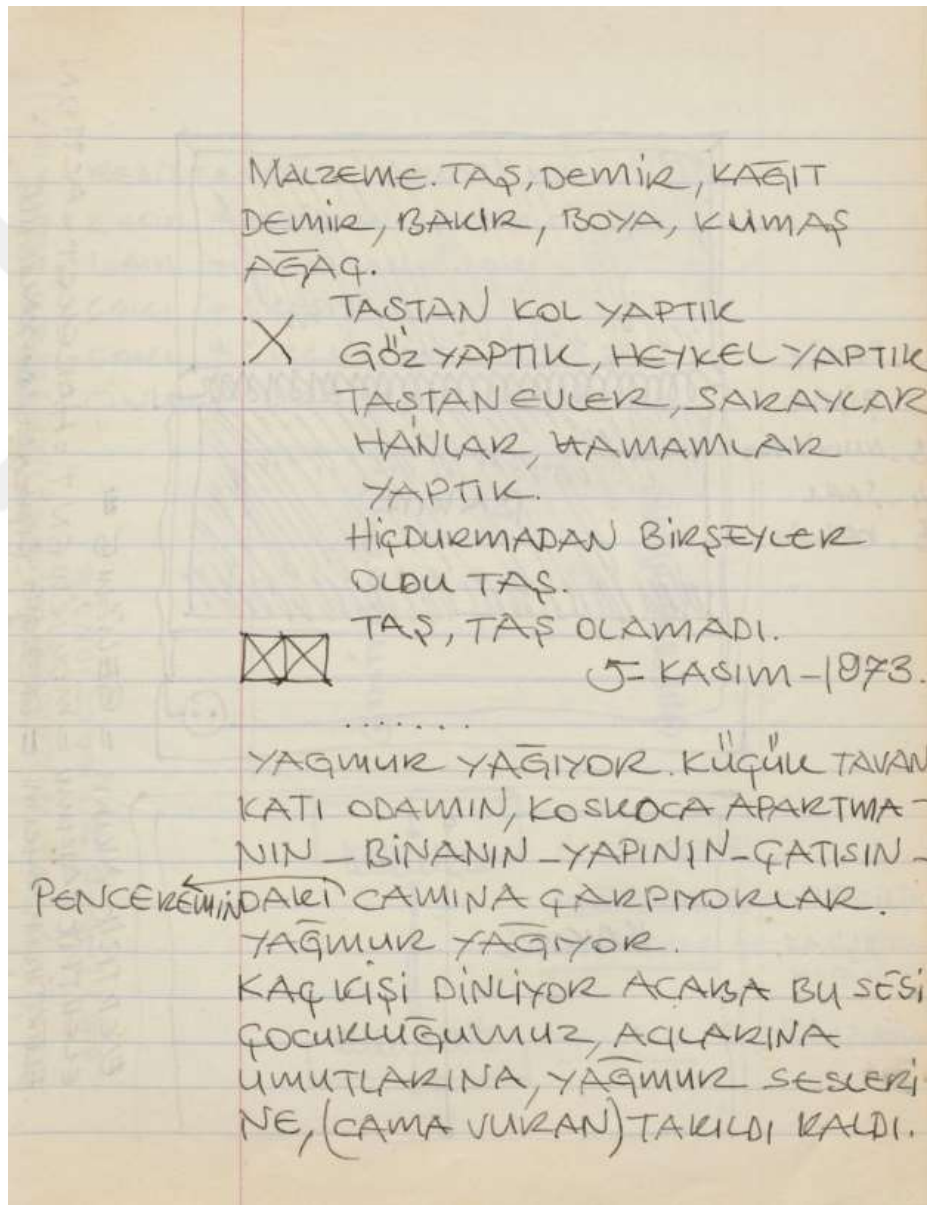 MALZEME. TAŞ, DEMİR, KAĞIT
DEMİR, BAKIR, BOYA, KUMAŞ
AĞAÇ.
TASTAN KOL YAPTIK
X GÖZ YAPTIK, HEYKEL YAPTIK
TAŞTAN EVLER, SARAYLAR
HANLAR, HAMAMLAR
YAPTIK.
HİÇDURMADAN BİRŞEYLER
OLDU TAŞ.
TAŞ, TAŞ OLAMADI.
5- KASIM -1973.
.......
YAGMUR YAĞIYOR. KÜÇÜK TAVAN
KATI ODAMIN, KOSKOCA APARTMA-
NIN - BİNANIN - YAPININ - ÇATISIN-
PENCEREMİN DAKİ CAMINA ÇARPIYORLAR.
YAĞMUR YAĞIYOR.
KAÇ KİŞİ DİNLİYOR ACABA BU SESİ
ÇOCUKLUĞUMUZ, ACILARINA
UMUTLARINA, YAĞMUR SESLERİ
NE, (CAMA VURAN) TAKILDI KALDI.